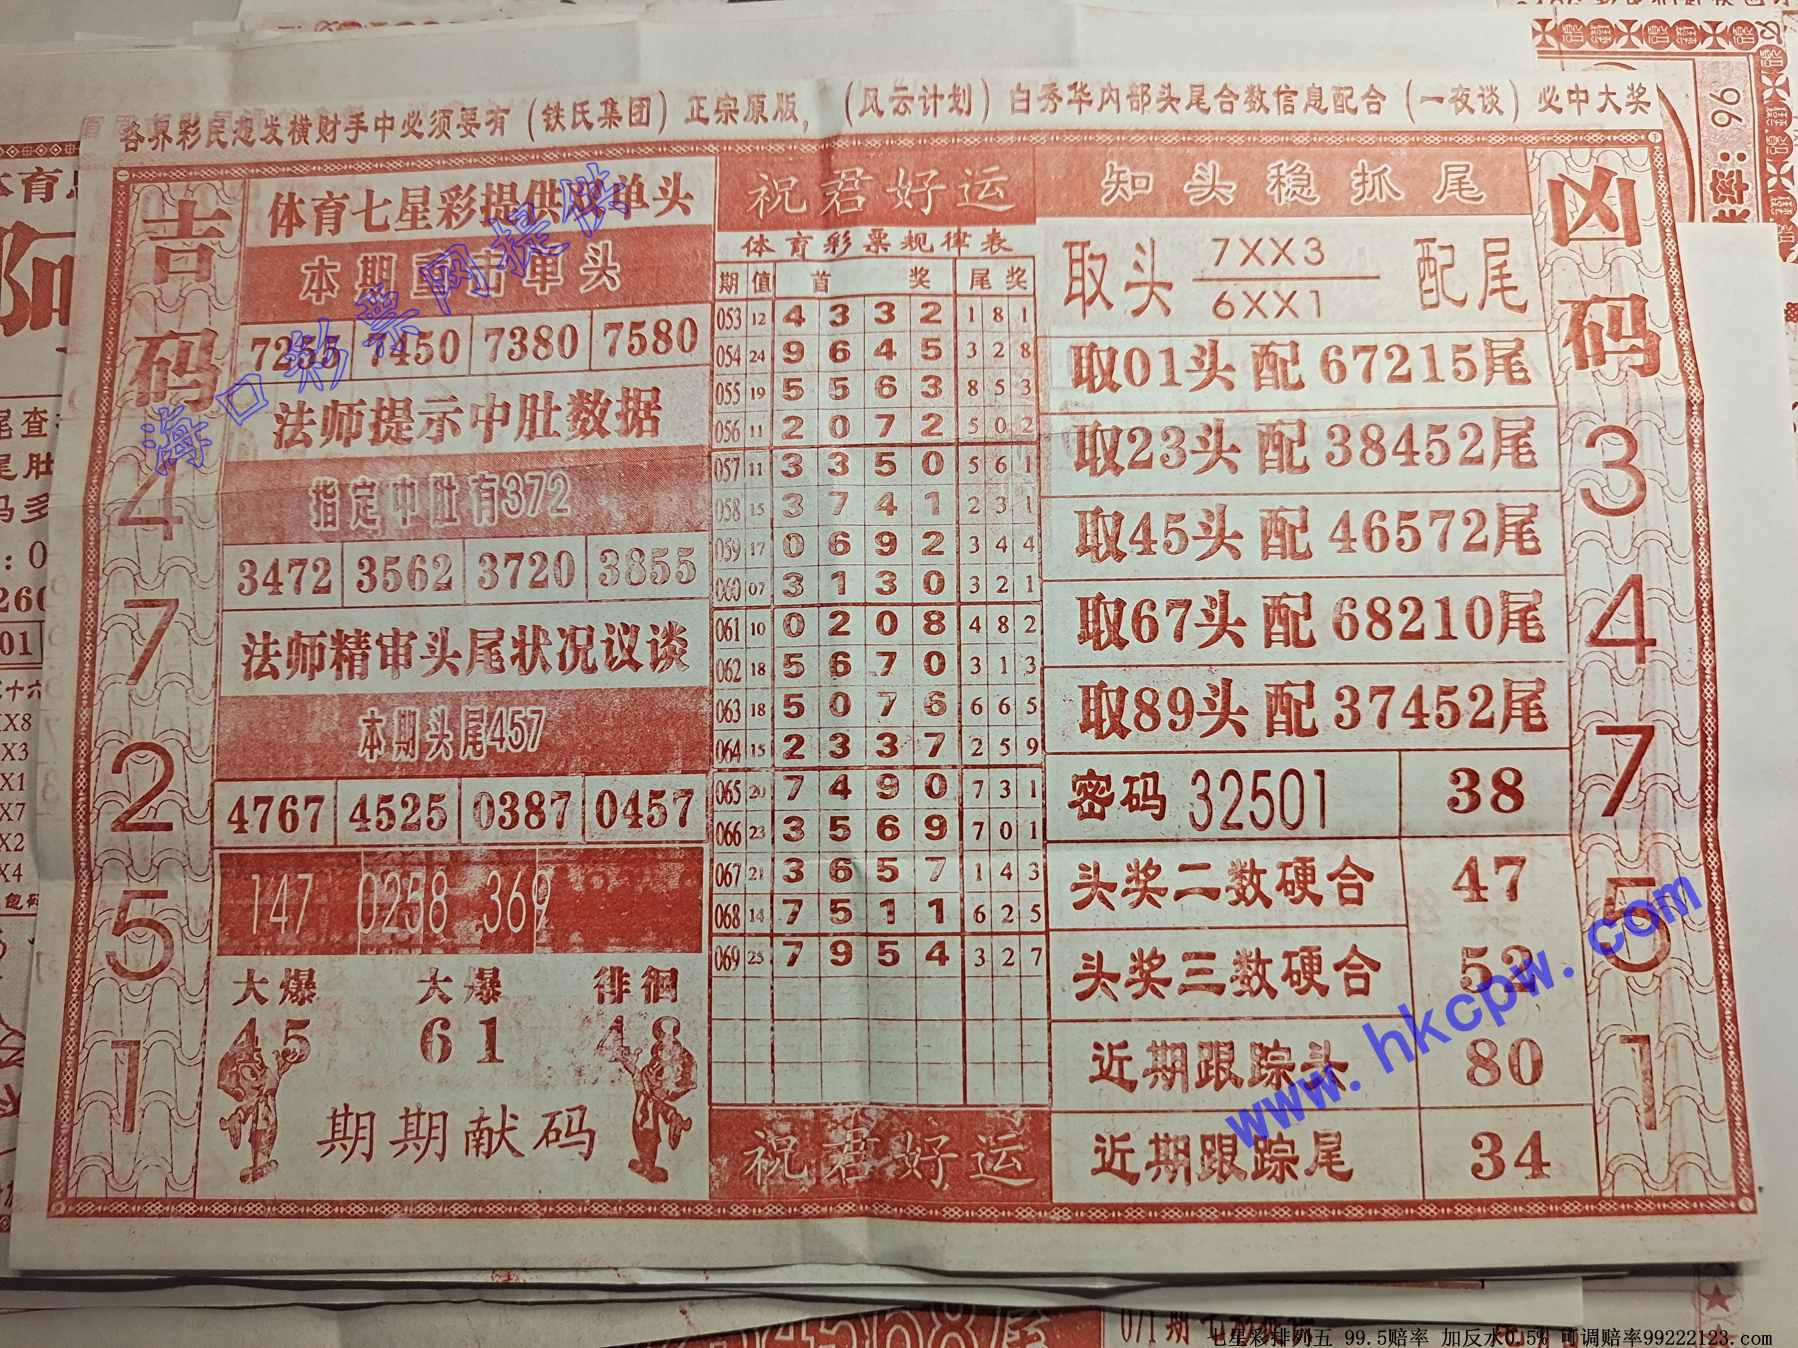 各界彩民想发横财手中必须要有（铁氏集团）正宗原版，（风云计划）白秀华内部头尾合数信息配合（一夜谈）必中大奖
吉码
4
7
2
5
1
体育七星彩提供双单头
本期重击单头
7255 7450 7380 7580
法师提示中肚数据
指定中肚有372
3472 3562 3720 3855
法师精审头尾状况议谈
本期头尾457
4767 4525 0387 0457
147 0258 369
大爆 大爆 徘徊
45 61 48
期期献码
祝君好运
体育彩票规律表
期 值 首 奖 尾 奖
053 12 4 3 3 2 1 8 1
054 24 9 6 4 5 3 2 8
055 19 5 5 6 3 8 5 3
056 11 2 0 7 2 5 0 2
057 11 3 3 5 0 5 6 1
058 15 3 7 4 1 2 3 1
059 17 0 6 9 2 3 4 4
060 07 3 1 3 0 3 2 1
061 10 0 2 0 8 4 8 2
062 18 5 6 7 0 3 1 3
063 18 5 0 7 6 6 6 5
064 15 2 3 3 7 2 5 9
065 20 7 4 9 0 7 3 1
066 23 3 5 6 9 7 0 1
067 21 3 6 5 7 1 4 3
068 14 7 5 1 1 6 2 5
069 25 7 9 5 4 3 2 7
祝君好运
知头稳抓尾
取头 7XX3 配尾
6XX1
取01头 配 67215尾
取23头 配 38452尾
取45头 配 46572尾
取67头 配 68210尾
取89头 配 37452尾
密码 32501 38
头奖二数硬合 47
头奖三数硬合 52
近期跟踪头 80
近期跟踪尾 34
凶码
3
4
7
5
1
海口彩票网提供
www.hkcpw.com
071期
七星彩排列五 99.5赔率 加反水0.5% 可调赔率99222123.com